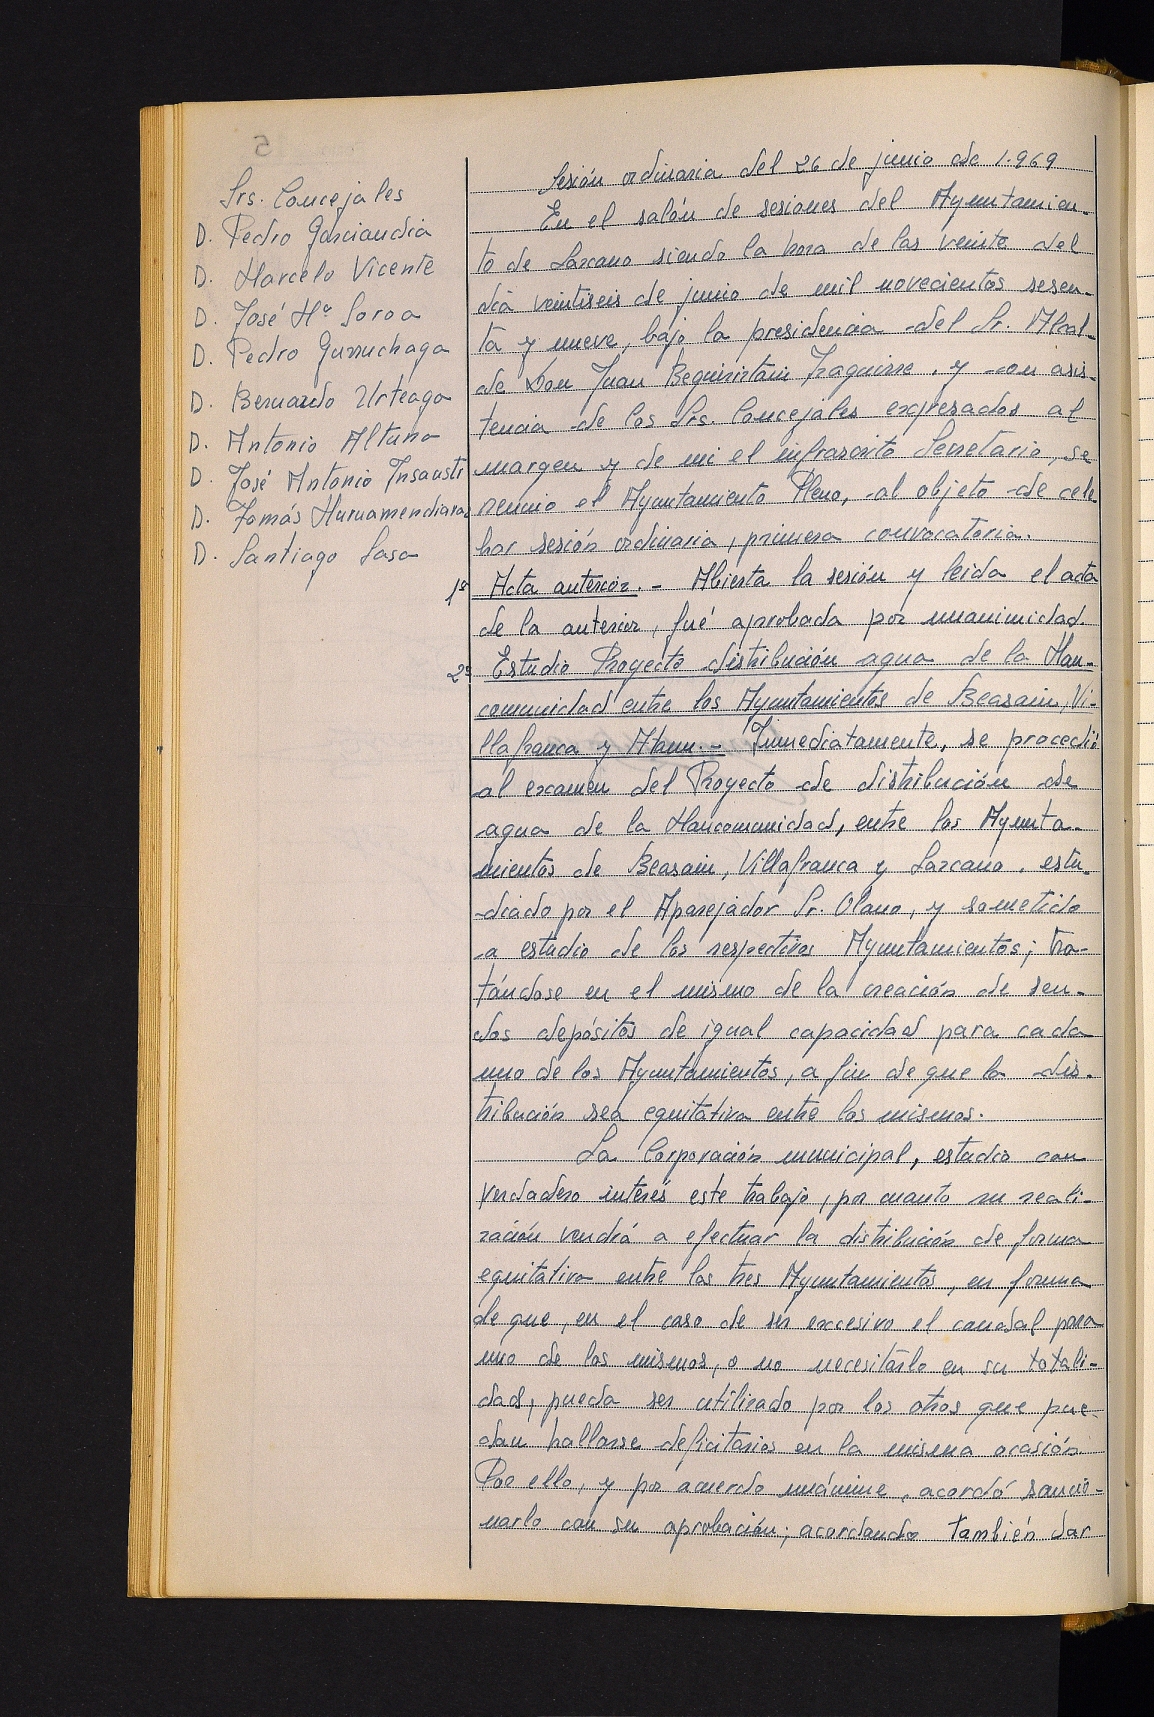 Srs. Concejales
D. Pedro Garciandia
D. Marcelo Vicente
D. José Mª Soroa
D. Pedro Gurruchaga
D. Bernardo Urteaga
D. Antonio Altuna
D. José Antonio Insausti
D. Tomás Murumendiaraz
D. Santiago Sasa
Sesión ordinaria del 26 de junio de 1.969
En el salón de sesiones del Ayuntamien-
to de Lazcano siendo la hora de las veinte del
día veintiseis de junio de mil novecientos sesen-
ta y nueve, bajo la presidencia del Sr. Alcal-
de Don Juan Beguiristain Izaguirre, y con asis-
tencia de los Srs. Concejales expresados al
margen y de mi el infrascrito Secretario, se
reunio el Ayuntamiento Pleno, al objeto de cele
brar sesión ordinaria, primera convocatoria.
1º Acta anterior.- Abierta la sesión y leida el acta
de la anterior, fué aprobada por unanimidad.
2º Estudio Proyecto distribución agua de la Man-
comunidad entre los Ayuntamientos de Beasain, Vi-
llafranca y Ataun.- Inmediatamente, se procedió
al examen del Proyecto de distribución de
agua de la Mancomunidad, entre los Ayunta-
mientos de Beasain, Villafranca y Lazcano, estu-
diado por el Aparejador Sr. Olano, y sometido
a estudio de los respectivos Ayuntamientos; tra-
tándose en el mismo de la creación de sen-
dos depósitos de igual capacidad para cada
uno de los Ayuntamientos, a fin de que la dis-
tribución sea equitativa entre los mismos.
La Corporación municipal, estudio con
verdadero interés este trabajo, por cuanto su reali-
zación vendrá a efectuar la distribución de forma
equitativa entre los tres Ayuntamientos, en forma
de que, en el caso de ser excesivo el caudal para
uno de los mismos, o no necesitarlo en su totali-
dad, pueda ser utilizado por los otros que pue-
dan hallarse deficitarios en la misma ocasión.
Por ello, y por acuerdo unánime, acordó sancio-
narlo con su aprobación; acordando también dar